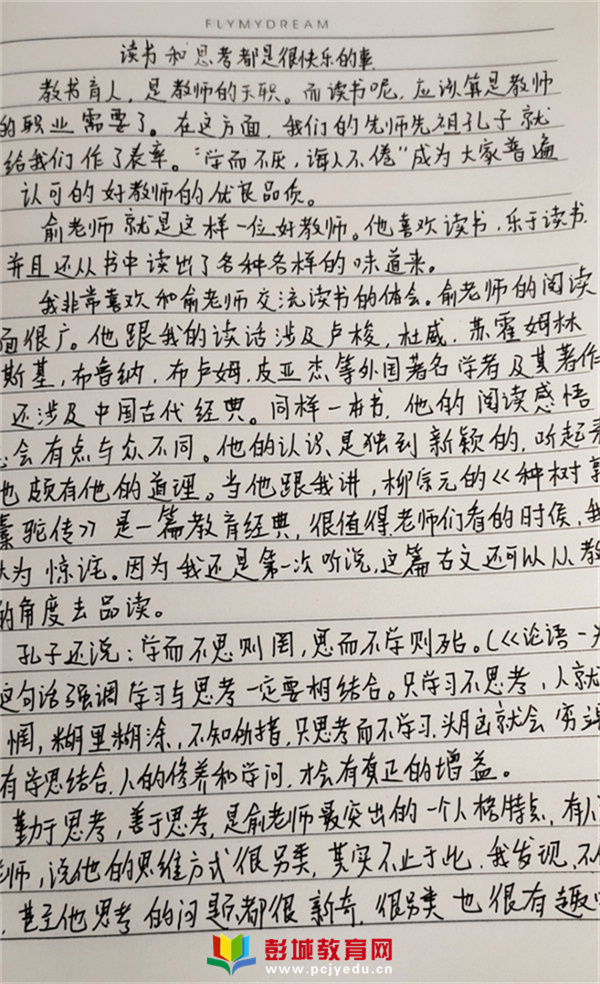 FLYMYDREAM
读书和思考都是很快乐的事
教书育人，是教师的天职。而读书呢，应该算是教师
的职业需要了。在这方面，我们的先师先祖孔子就
给我们作了表率。“学而不厌，诲人不倦”成为大家普遍
认可的好教师的优良品质。
俞老师就是这样一位好教师。他喜欢读书，乐于读书
并且还从书中读出了各种各样的味道来。
我非常喜欢和俞老师交流读书的体会。俞老师的阅读
面很广。他跟我的谈话涉及卢梭，杜威，苏霍姆林
斯基，布鲁纳，布卢姆，皮亚杰等外国著名学者及其著作
还涉及中国古代经典。同样一本书，他的阅读感悟
会有点与众不同。他的认识是独到新颖的，听起来
也颇有他的道理。当他跟我讲，柳宗元的《种树郭
橐驼传》是一篇教育经典，很值得老师们看的时候，我
大为惊诧。因为我还是第一次听说，这篇古文还可以从教
的角度去品读。
孔子还说：学而不思则罔，思而不学则殆。（《论语一为
这句话强调学习与思考一定要相结合。只学习不思考，人就
惘，糊里糊涂，不知所措，只思考而不学习，头脑就会穷竭
有学思结合，人的修养和学问，才会有真正的增益。
勤于思考，善于思考，是俞老师最突出的一个人格特点，有人
老师，说他的思维方式很另类，其实不止于此，我发现，不
，甚至他思考的问题都很新奇，很另类也很有趣
彭城教育网
www.pcjyedu.cn